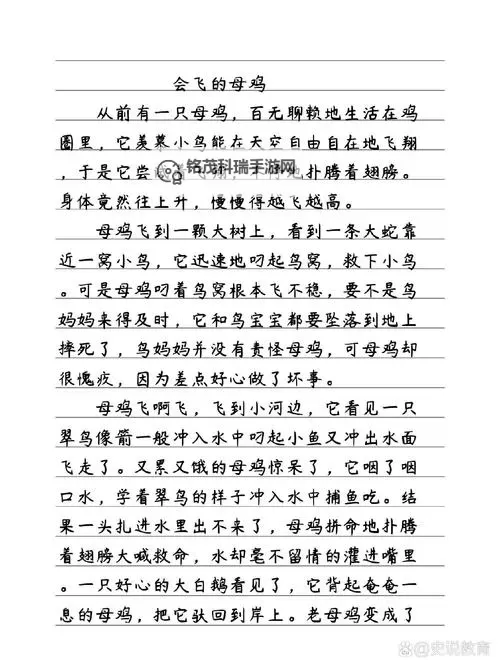 会飞的母鸡
从前有一只母鸡，百无聊赖地生活在鸡
圈里，它羡慕小鸟能在天空自由自在地飞翔
，于是它尝 扑腾着翅膀。
铭茂科瑞手游网
身体竟然往上升，慢慢得越飞越高。
母鸡飞到一颗大树上，看到一条大蛇靠
近一窝小鸟，它迅速地叼起鸟窝，救下小鸟
。可是母鸡叼着鸟窝根本飞不稳，要不是鸟
妈妈来得及时，它和鸟宝宝都要坠落到地上
摔死了，鸟妈妈并没有责怪母鸡，可母鸡却
很愧疚，因为差点好心做了坏事。
母鸡飞啊飞，飞到小河边，它看见一只
翠鸟像箭一般冲入水中叼起小鱼又冲出水面
飞走了。又累又饿的母鸡惊呆了，它咽了咽
口水，学着翠鸟的样子冲入水中捕鱼吃。结
果一头扎进水里出不来了，母鸡拼命地扑腾
着翅膀大喊救命，水却毫不留情的灌进嘴里
。一只好心的大白鹅看见了，它背起奄奄一
息的母鸡，把它驮回到岸上。老母鸡变成了
@史说教育